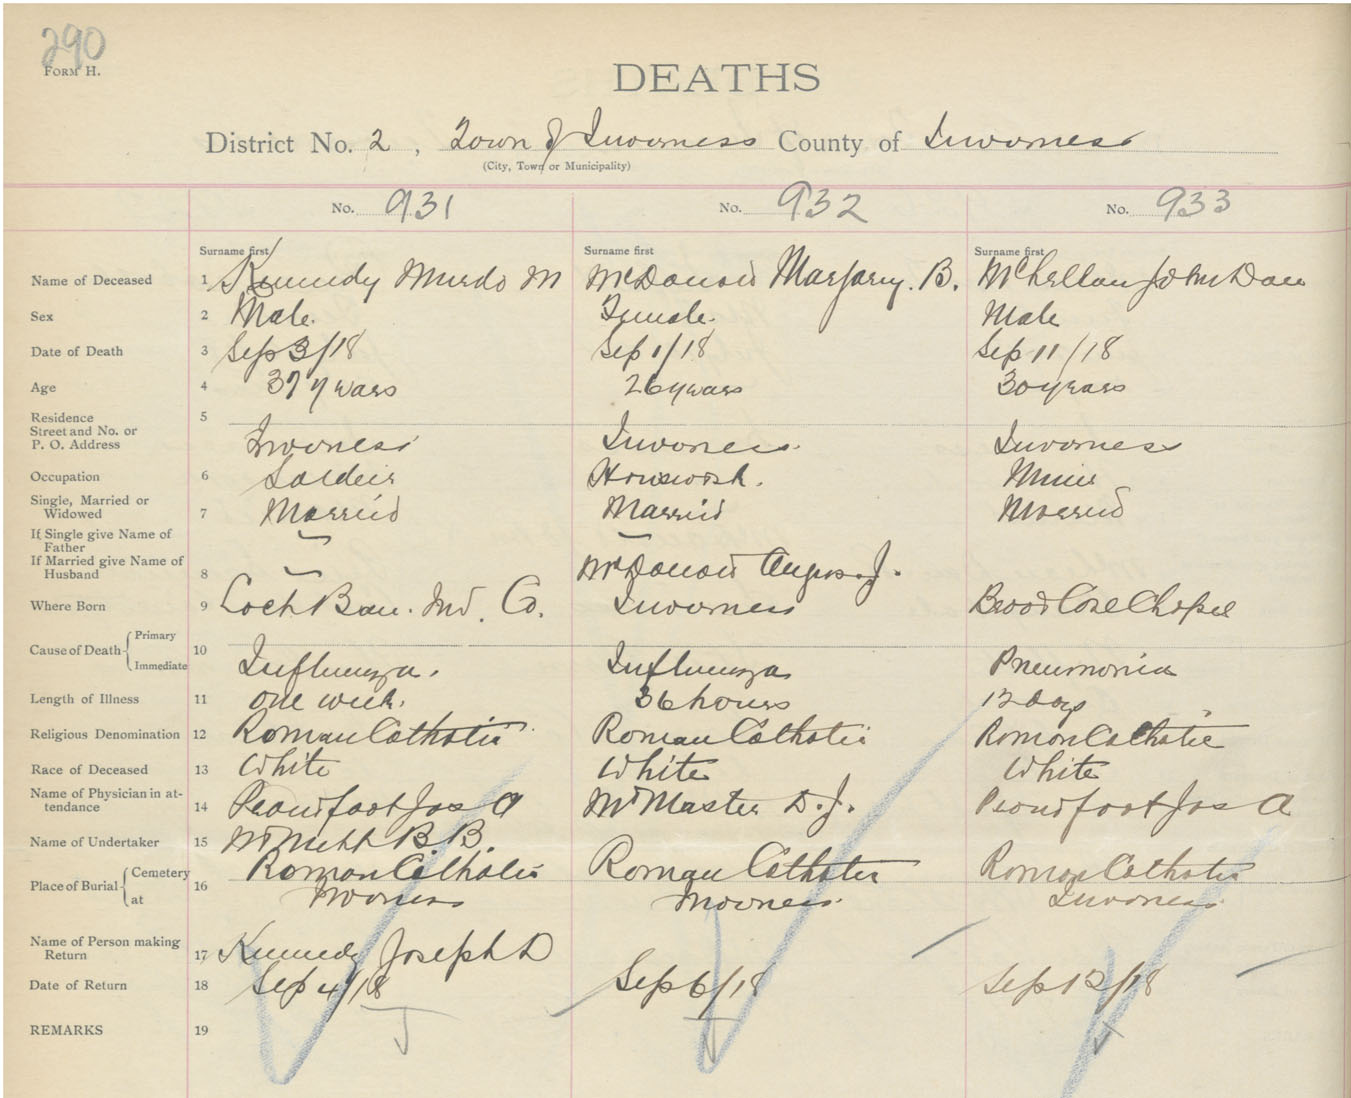 290
FORM H.
DEATHS
District No. 2, Town of Inverness County of Inverness
(City, Town or Municipality)
No. 931 No. 932 No. 933
Surname first Surname first Surname first
Name of Deceased 1 Kennedy Murdo M McDonald Marjary. B. McLellan John Dan
Sex 2 Male. Female. Male
Date of Death 3 Sep 3/18 Sep 1/18 Sep 11/18
Age 4 37 years 26 years 30 years
Residence 5
Street and No. or
P. O. Address Inverness Inverness. Inverness
Occupation 6 Soldeir Housework. Miner
Single, Married or
Widowed 7 Married Married Married
If Single give Name of
Father
If Married give Name of
Husband 8 McDonald Angus. J.
Where Born 9 Loch Ban. Inv. Co. Inverness Broad Cove Chapel
Cause of Death { Primary 10
Immediate Influenza. Influenza Pneumonia
Length of Illness 11 one week. 36 hours 12 days
Religious Denomination 12 Roman Catholic Roman Catholic Roman Catholic
Race of Deceased 13 White White White
Name of Physician in at-
tendance 14 Proudfoot Jas A McMaster D. J. Proudfoot Jas A
Name of Undertaker 15 B. B.
Place of Burial { Cemetery 16 Roman Catholic Roman Catholic Roman Catholic
at Inverness Inverness. Inverness.
Name of Person making
Return 17 Kennedy Joseph D
Date of Return 18 Sep 4/18 Sep 6/18 Sep 12/18
REMARKS 19